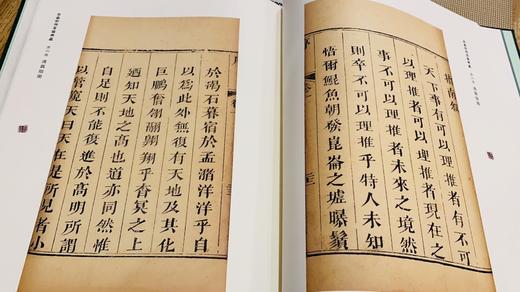 指南敘
天下事有可以理推者有不可
以理推者可以理推者現在之
事不可以理推者未來之境然
則卒不可以理推乎特人未知
悟爾鯤魚朝發崑崙之墟曝鬐
於碣石暮宿於孟瀦洋洋乎自
以爲此外無復有天地及其化
巨鵬奮翔乎杳冥之上
廼知天地之高也道亦同然惟
自足則不能復進於高明所謂
以管窺天曰天在是所見者小
清真指南